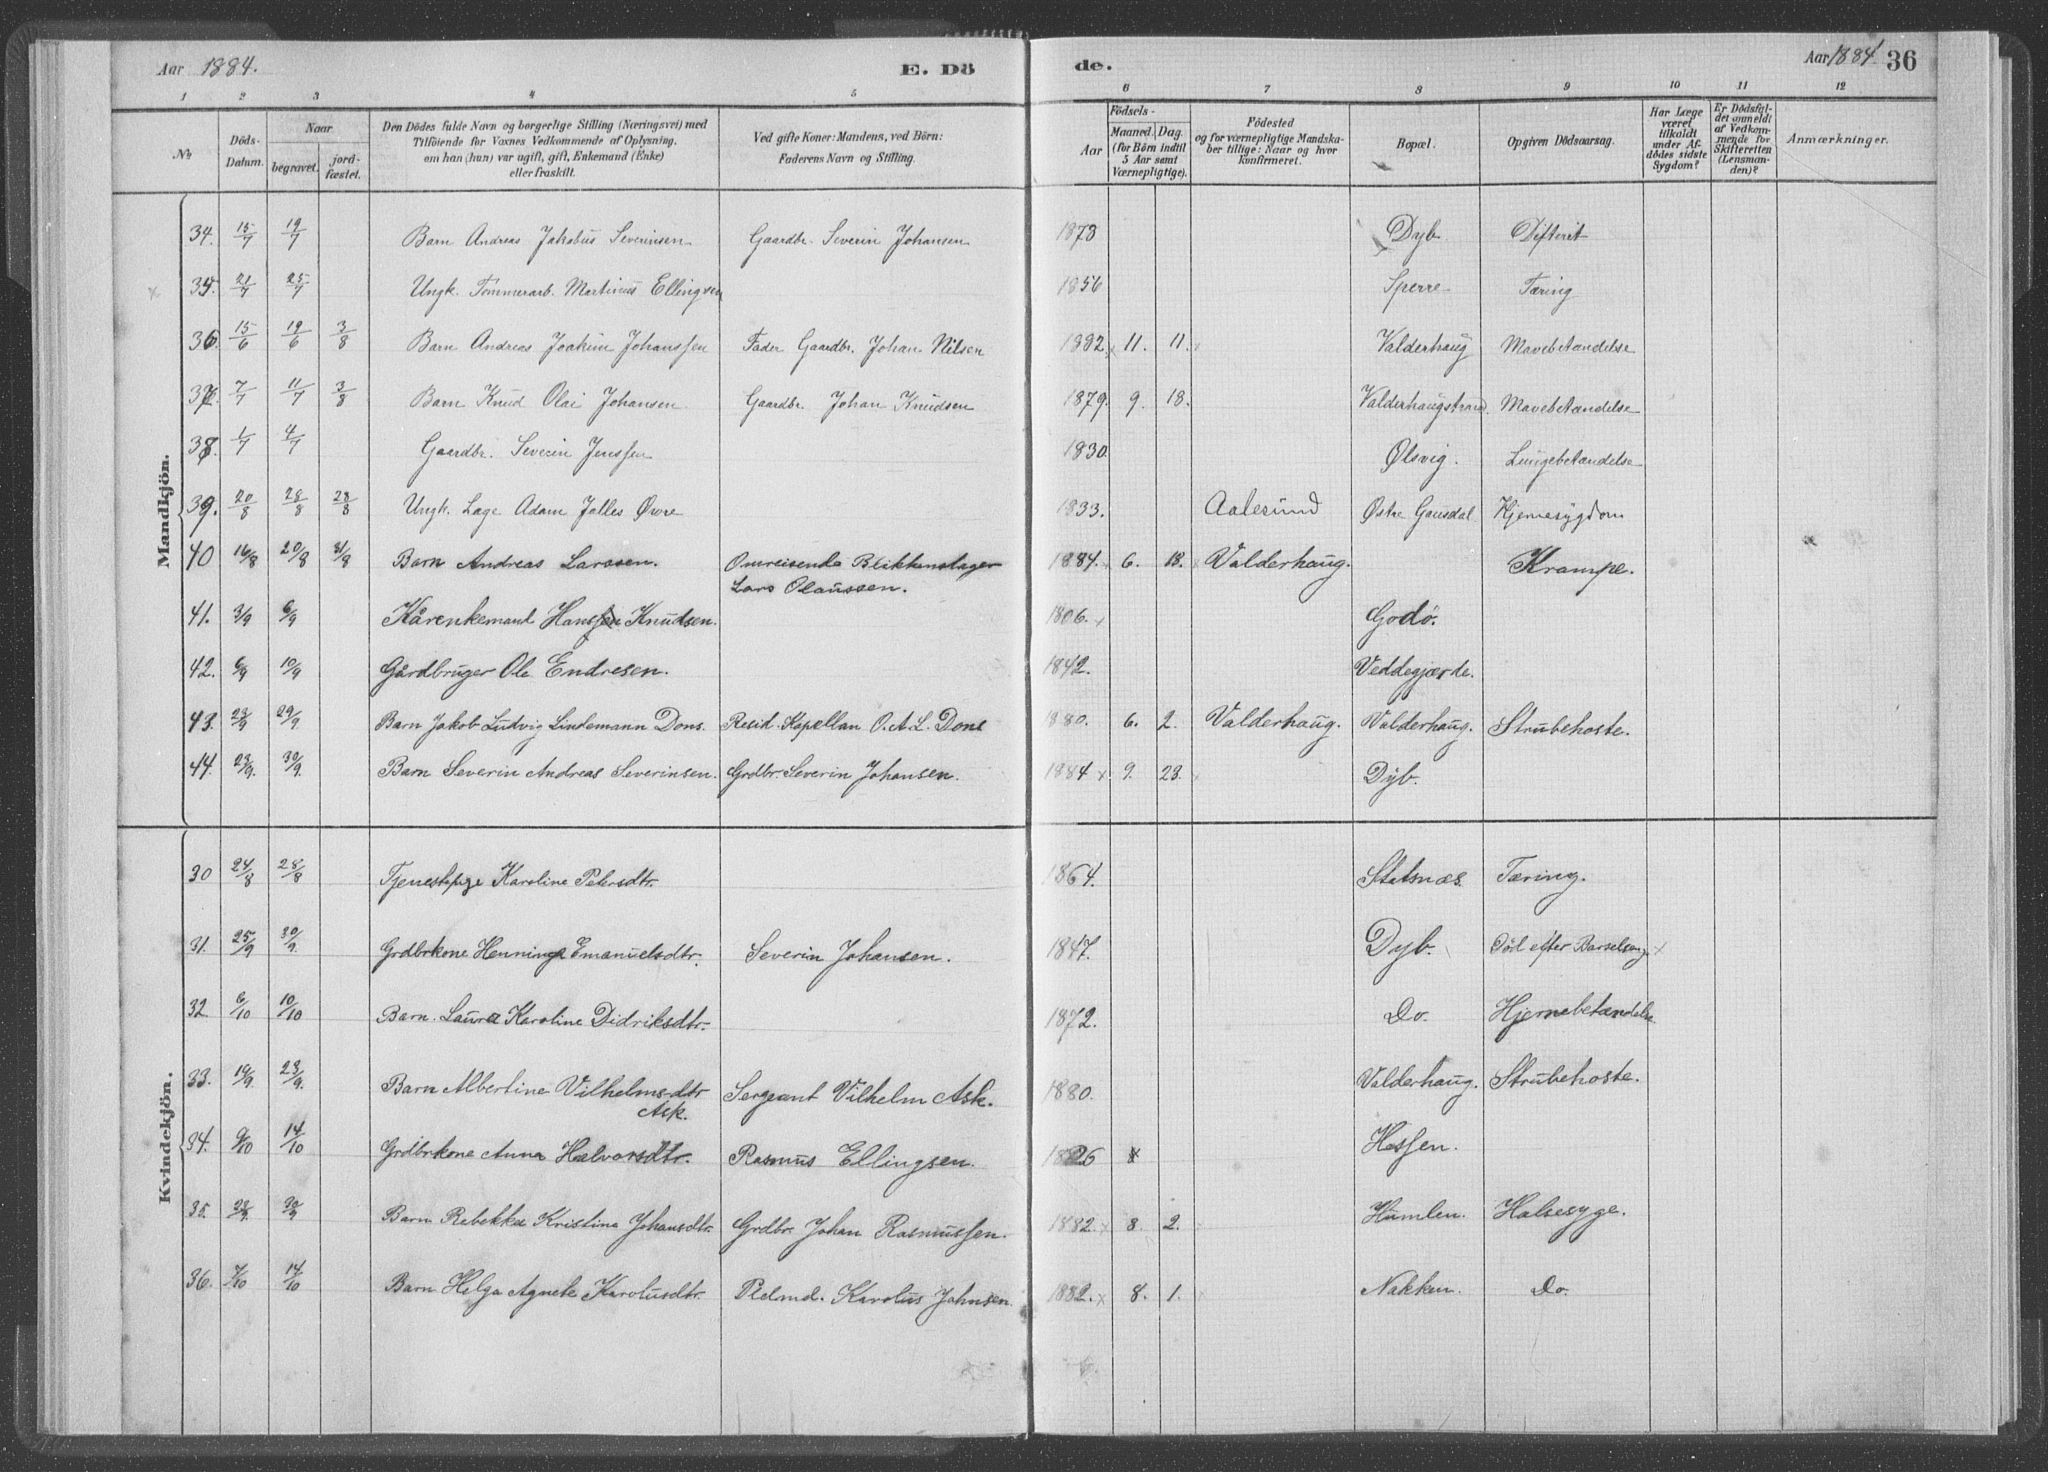 Aar 1884. E. Dö de. Aar 1884 36
1 2 3 4 5 6 7 8 9 10 11 12
No Döds-Datum. Naar begravet. jord-fæstet. Den Dödes fulde Navn og borgerlige Stilling (Næringsvei) med Tilföiende for Voxnes Vedkommende af Oplysning, om han (hun) var ugift, gift, Enkemand (Enke) eller fraskilt. Ved gifte Koner: Mandens, ved Börn: Faderens Navn og Stilling. Födsels- Aar Maaned. Dag. (for Börn indtil 5 Aar samt Værnepligtige). Födested og for værnepligtige Mandskaber tillige: Naar og hvor konfirmeret. Bopæl. Opgiven Dödsaarsag. Har Læge været tilkaldt under Afdödes sidste Sygdom? Er Dödsfaldet anmeldt af Vedkommende for Skifteretten (Lensmanden)? Anmærkninger.
Mandkjön.
34. 15/7 19/7 Barn Andreas Jakobus Severinsen Gaardbr. Severin Johansen 1873 Dyb Difterit
35. 21/7 25/7 Ungk. Tømmerarb. Martinus Ellingsen 1856 Sperre Tæring
36. 15/6 19/6 3/8 Barn Andreas Joakim Johanssen Fader Gaardbr. Johan Nilsen 1882 11. 11. Valderhaug Mavebetændelse
37. 7/7 11/7 3/8 Barn Knud Olai Johansen Gaardbr. Johan Knudsen 1879. 9. 18. Valderhaugstrand Mavebetændelse
38. 1/7 4/7 Gaardbr. Severin Jenssen 1830 Ølsvig. Lungebetændelse
39. 20/8 28/8 28/8 Ungk. Læge Adam Jelles Øvre 1833. Aalesund Østre Gausdal Hjernesygdom
40 16/8 20/8 31/8 Barn Andreas Larssen. Omreisende Blikkenslager 1884. 6. 18. Valderhaug. Krampe.
Lars Olaussen.
41. 3/9 6/9 Kårenkemand Hans Knudsen. 1806. Godö.
42. 6/9 10/9 Gårdbruger Ole Endresen. 1842. Veddegjerde.
43. 23/9 29/9. Barn Jakob Ludvig Lindemann Dons. Resid. Kapellan O. A. L. Dons 1880. 6. 2. Valderhaug. Valderhaug. Strubehoste.
44. 23/9. 30/9. Barn Severin Andreas Severinsen. Grdbr. Severin Johansen. 1884 9. 23. Dyb.
Kvindekjön.
30 24/8 28/8 Tjenestpige Karoline Petersdtr. 1864. Statsnæs. Tæring.
31. 25/9 30/9. Grdbrkone Henninga Emanuelsdtr. Severin Johansen. 1847. Dyb. Död efter Barselseng.
32 6/10 10/10 Barn. Laura Karoline Didriksdtr. 1872. Do. Hjernebetændelse
33. 19/9. 23/9. Barn Albertine Vilhelmsdtr Sergeant Vilhelm Ask. 1880. Valderhaug. Strubehoste.
Ask.
34. 9/10 14/10 Grdbrkone Anna Halvorsdtr. Rasmus Ellingsen. 1826 Hessen.
35. 28/9. 30/9 Barn Rebekka Kristine Johansdtr. Grdbr. Johan Rasmussen. 1882. 8. 2. Humlen. Halsesyge.
36. 7/10 14/10 Barn Helga Agnete Karolusdtr. Pldmd. Karolus Johnsen. 1882. 8. 1. Nakken. Do.